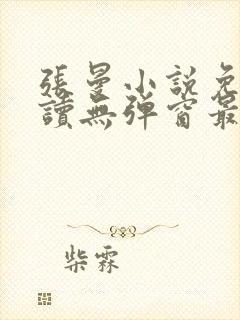 張曼小說免
讀無彈窗最
柴霖